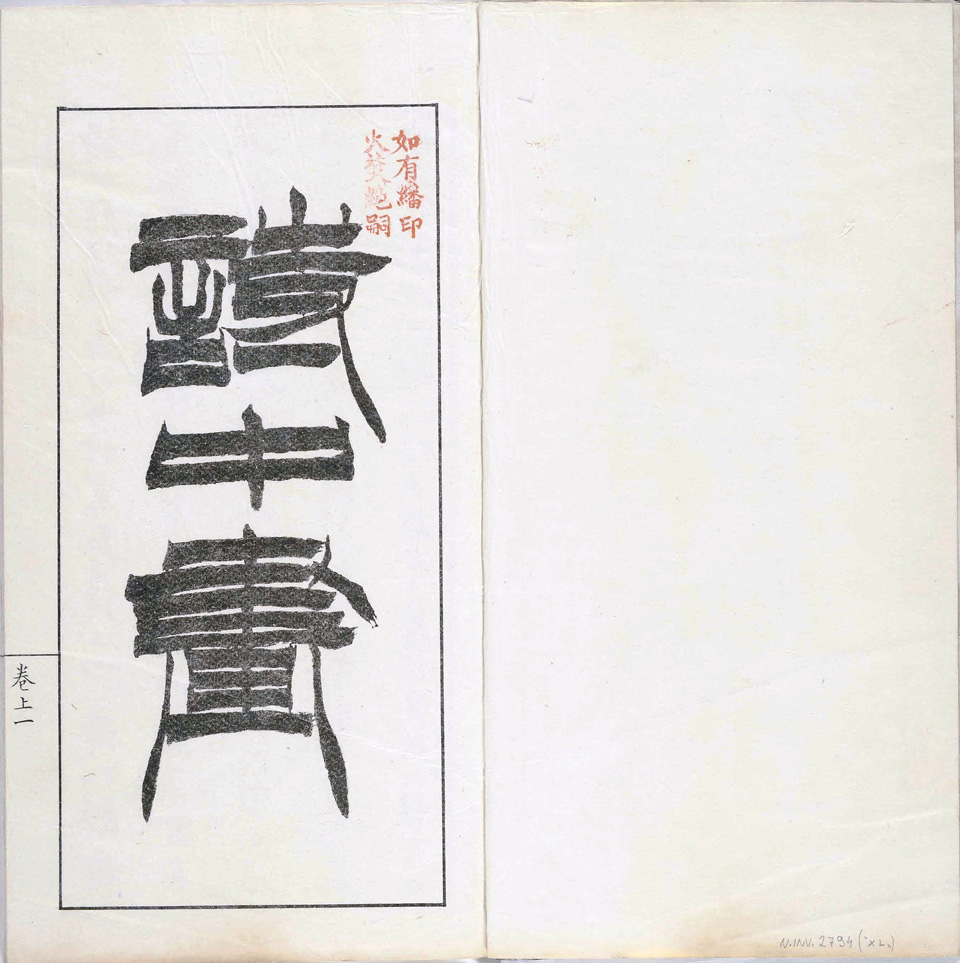 如有繙印
火焚絕嗣
詩中畫
卷上一
N.INV. 2794 ("XL")